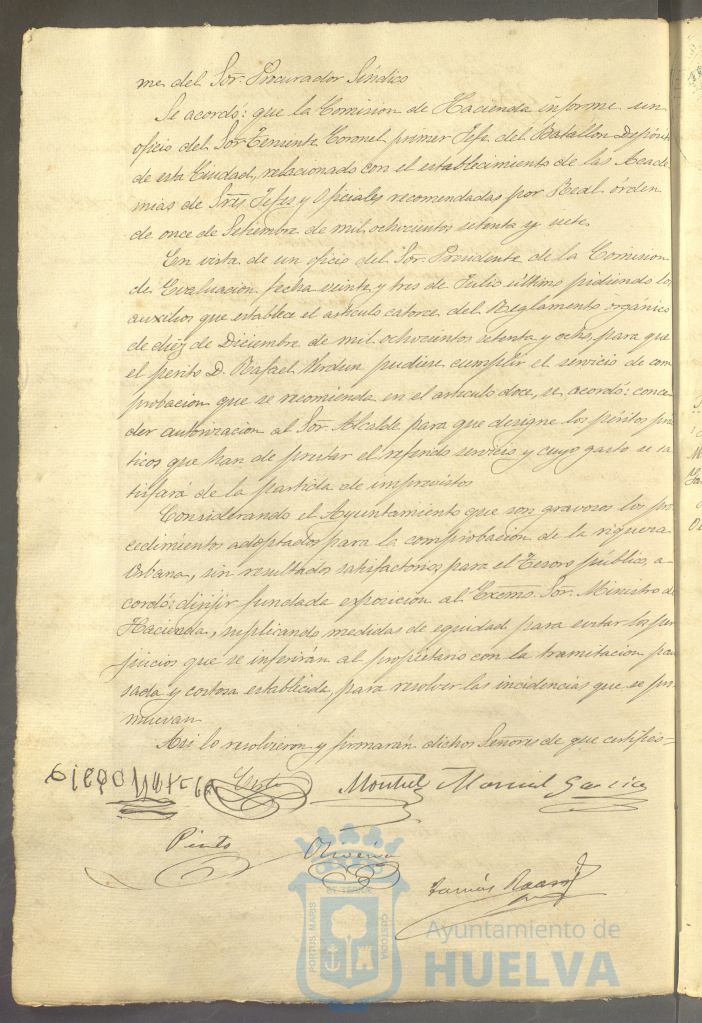 me del Sor. Procurador Síndico
Se acordó: que la Comision de Hacienda informe un
oficio del Sor Teniente Coronel primer Jefe del Batallon Depósito
de esta Ciudad, relacionado con el establecimiento de las Acade
mias de Sres Jefes y Oficiales recomendadas por Real órden
de once de Setiembre de mil ochocientos setenta y siete.
En vista de un oficio del Sor. Presidente de la Comision
de Evaluacion fecha veinte y tres de Julio último pidiendo los
auxilios que establece el artículo catorce del Reglamento orgánico
de diez de Diciembre de mil ochocientos setenta y ocho para que
el perito D. Rafael Verdun pudiese cumplir el servicio de com
probacion que se recomienda en el artículo doce, se acordó: conce
der autorizacion al Sor. Alcalde para que designe los peritos prac
ticos que han de prestar el referido servicio y cuyo gasto se sa
tisfará de la partida de imprevistos
Considerando el Ayuntamiento que son gravosos los pro
cedimientos adoptados para la comprobacion de la riqueza
Urbana, sin resultados satisfactorios para el Tesoro público, a-
cordó: dirijir fundada exposicion al Excmo. Sor. Ministro de
Hacienda, suplicando medidas de equidad para evitar los per
juicios que se inferirán al propietario con la tramitacion pau
sada y costosa establecida, para resolver las incidencias que se pro
muevan
Asi lo resolvieron y firmarán dichos Señores de que certifico =
Montiel Manuel Garcia
Pinto Oliveira
Tomás
ET TERRA
PORTUS MARIS
CUSTODIA
Ayuntamiento de
HUELVA